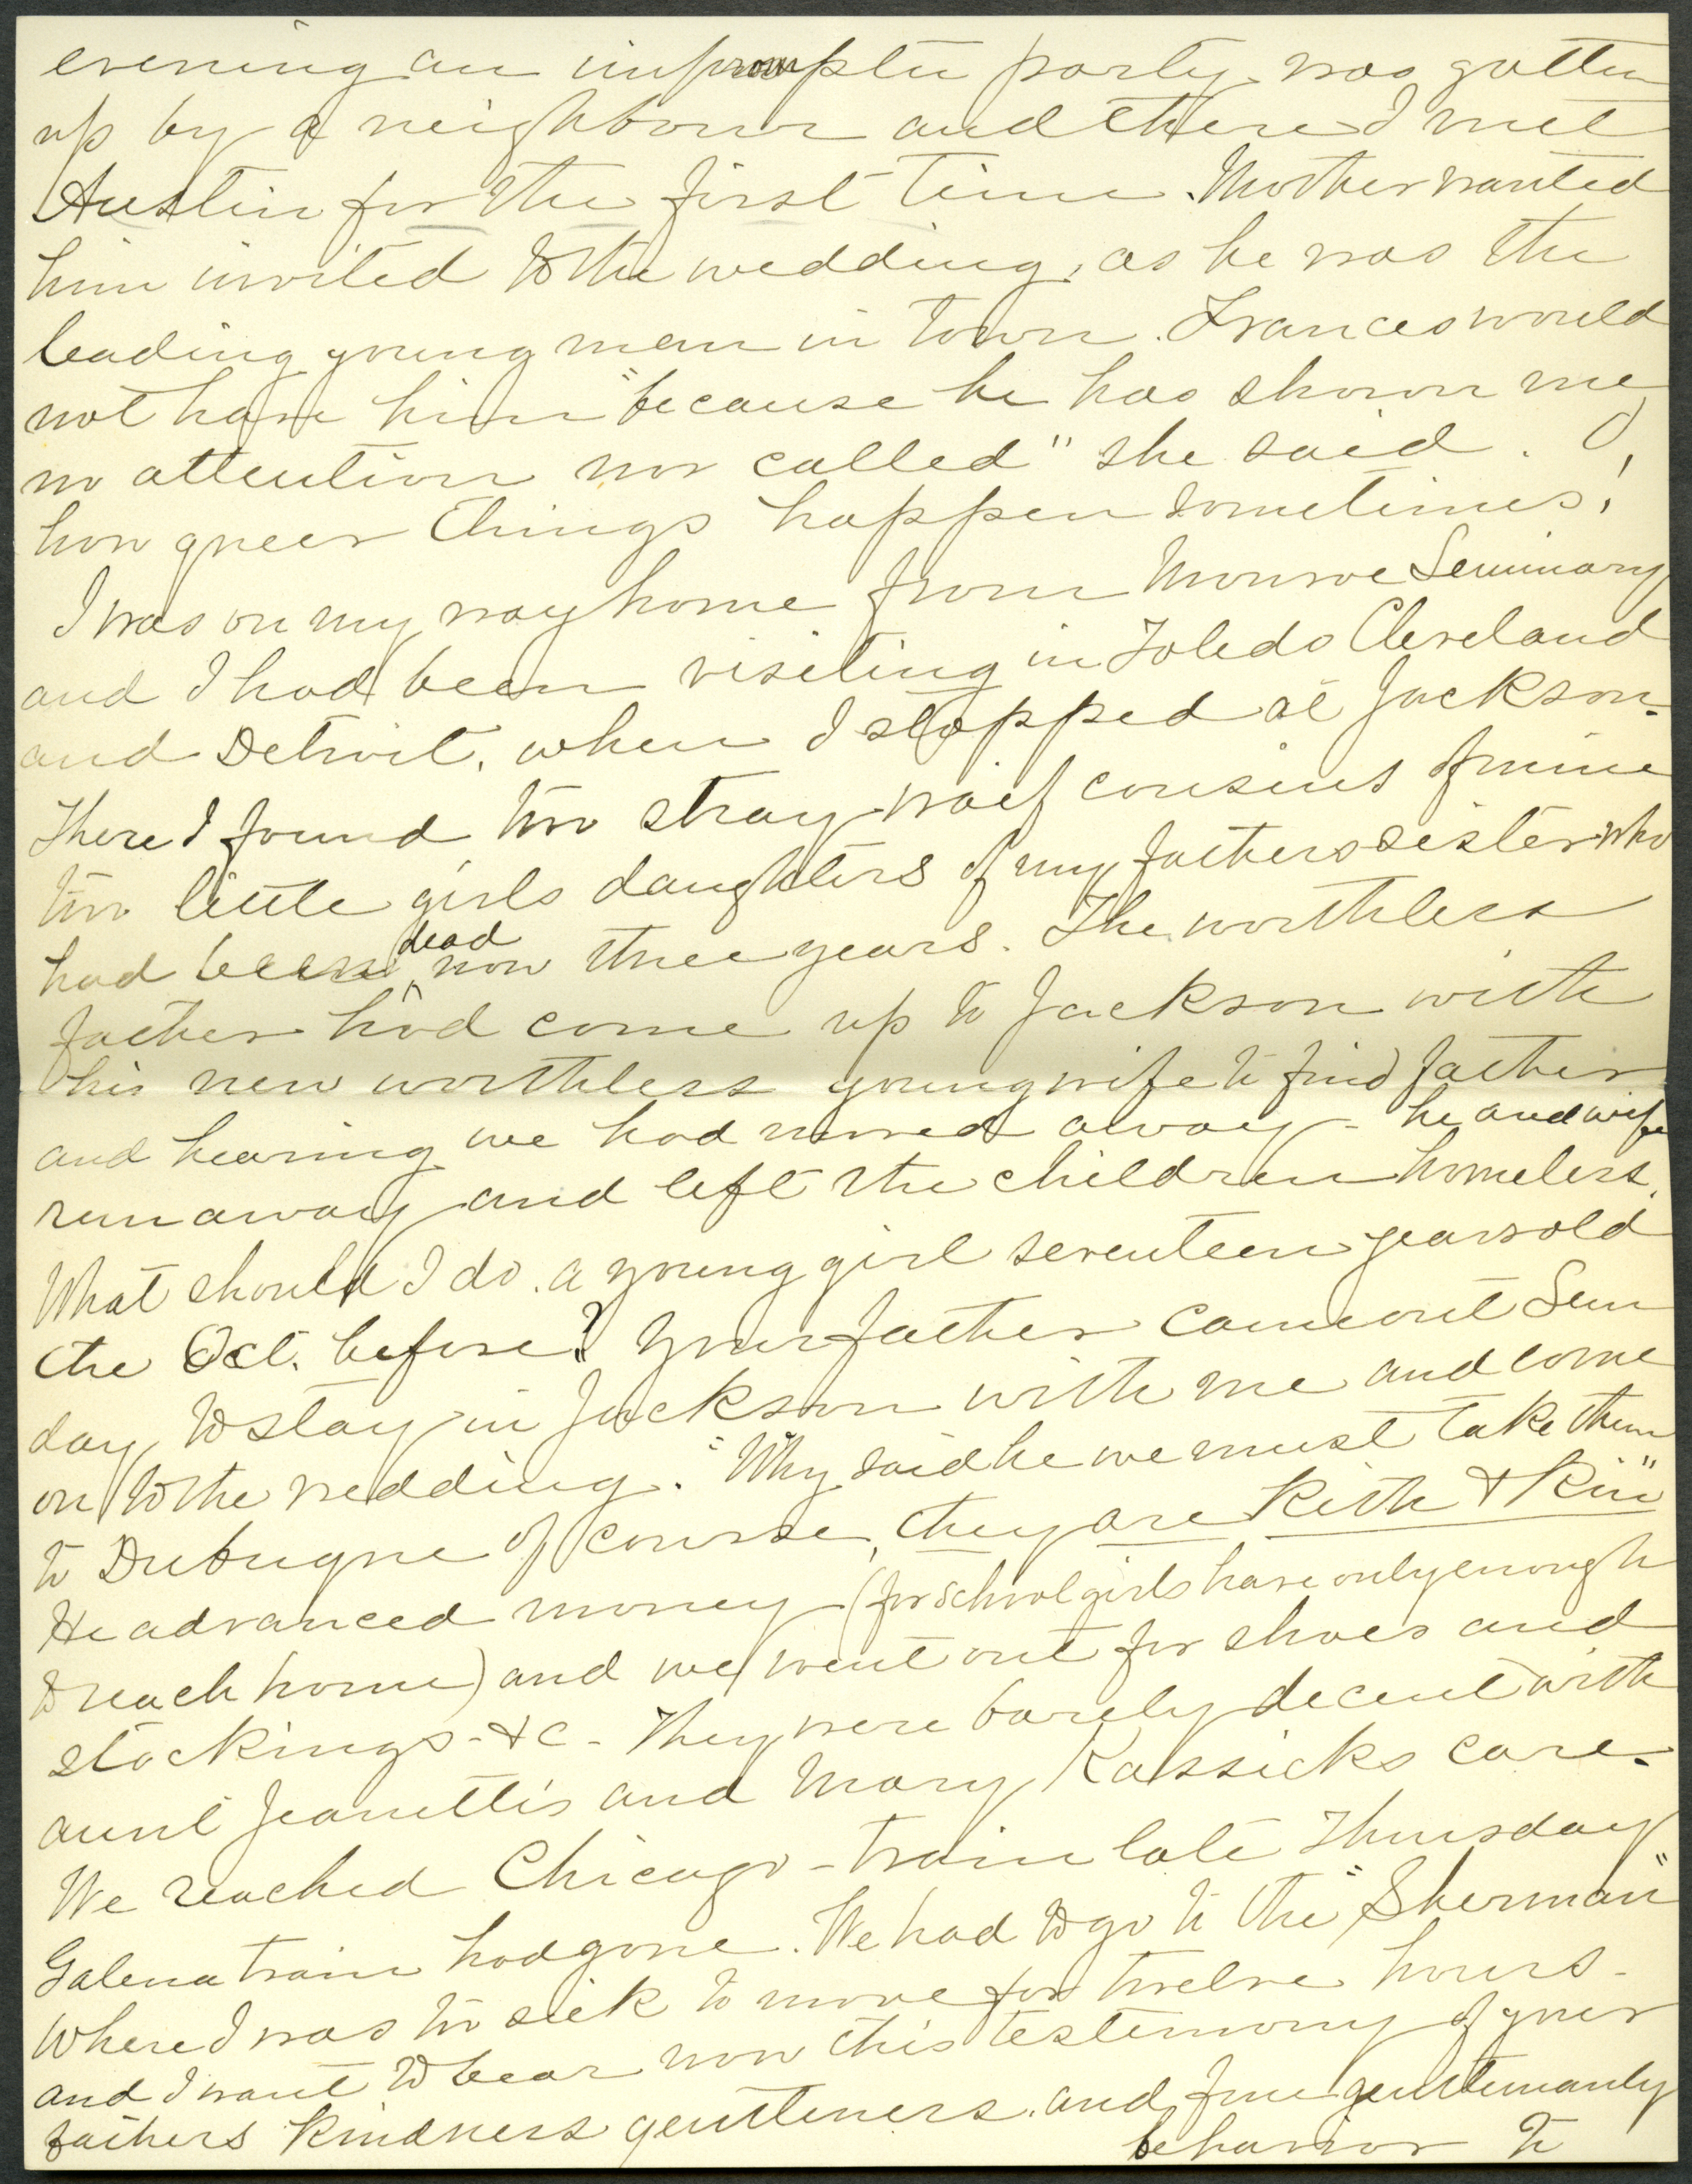 evening an impromptu party was gotten
up by a neighbour and there I met
Austin for the first time. Mother wanted
him invited to the wedding, as he was the
leading young man in town. Frances would
not have him "because he has shown me
no attention nor called" she said. O,
how queer things happen sometimes!
I was on my way home from Monroe Seminary
and I had been visiting in Toledo Cleveland
and Detroit, when I stopped at Jackson.
There I found two stray waif cousins of mine
two little girls daughters of my fathers sister who
had been dead now three years. The worthless
father had come up to Jackson with
his new worthless young wife to find father
and hearing we had moved away - he and wife
run away and left the children homeless.
What should I do. a young girl seventeen years old
the Oct. before? Your father came out Sun
day to stay in Jackson with me and come
on to the wedding. "Why said he we must take them
to Dubuque of course, they are Kith & Kin"
He advanced money (for school girls have only enough
to reach home) and we went out for shoes and
stockings - &c - They were barely decent with
aunt Jeanettis and Mary Kassicks care.
We reached Chicago - train late Thursday
Galena train had gone. We had to go to the "Sherman"
Where I was too sick to move for twelve hours -
and I want to bear now this testimony of your
fathers kindness gentleness. and fine gentlemanly
behavior to